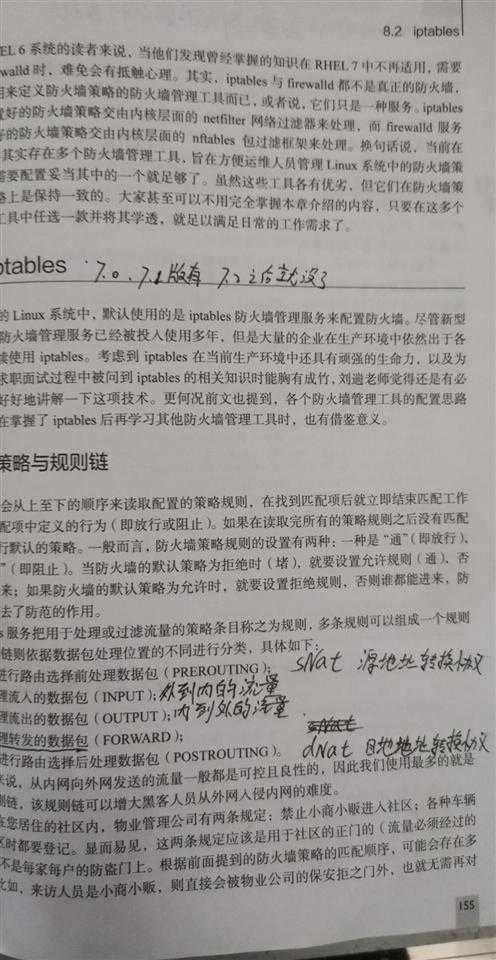 8.2 iptables
HEL 6 系统的读者来说，当他们发现曾经掌握的知识在 RHEL 7 中不再适用，需要
ewalld 时，难免会有抵触心理。其实，iptables 与 firewalld 都不是真正的防火墙，
用来定义防火墙策略的防火墙管理工具而已，或者说，它们只是一种服务。iptables
置好的防火墙策略交由内核层面的 netfilter 网络过滤器来处理，而 firewalld 服务
好的防火墙策略交由内核层面的 nftables 包过滤框架来处理。换句话说，当前在
其实存在多个防火墙管理工具，旨在方便运维人员管理 Linux 系统中的防火墙策
需要配置妥当其中的一个就足够了。虽然这些工具各有优劣，但它们在防火墙策
路上是保持一致的。大家甚至可以不用完全掌握本章介绍的内容，只要在这多个
工具中任选一款并将其学透，就足以满足日常的工作需求了。
ptables 7.0、7.1版有 7.2之后就没了
的 Linux 系统中，默认使用的是 iptables 防火墙管理服务来配置防火墙。尽管新型
防火墙管理服务已经被投入使用多年，但是大量的企业在生产环境中依然出于各
续使用 iptables。考虑到 iptables 在当前生产环境中还具有顽强的生命力，以及为
求职面试过程中被问到 iptables 的相关知识时能胸有成竹，刘遄老师觉得还是有必
好好地讲解一下这项技术。更何况前文也提到，各个防火墙管理工具的配置思路
在掌握了 iptables 后再学习其他防火墙管理工具时，也有借鉴意义。
策略与规则链
会从上至下的顺序来读取配置的策略规则，在找到匹配项后就立即结束匹配工作
配项中定义的行为（即放行或阻止）。如果在读取完所有的策略规则之后没有匹配
行默认的策略。一般而言，防火墙策略规则的设置有两种：一种是“通”（即放行），
”（即阻止）。当防火墙的默认策略为拒绝时（堵），就要设置允许规则（通），否
来；如果防火墙的默认策略为允许时，就要设置拒绝规则，否则谁都能进来，防
去了防范的作用。
s 服务把用于处理或过滤流量的策略条目称之为规则，多条规则可以组成一个规则
链则依据数据包处理位置的不同进行分类，具体如下：
进行路由选择前处理数据包（PREROUTING）； sNat 源地址转换协议
理流入的数据包（INPUT）；外到内的流量
理流出的数据包（OUTPUT）；内到外的流量
理转发的数据包（FORWARD）；
进行路由选择后处理数据包（POSTROUTING）。 dNat 目地地址转换协议
来说，从内网向外网发送的流量一般都是可控且良性的，因此我们使用最多的就是
则链，该规则链可以增大黑客人员从外网入侵内网的难度。
在您居住的社区内，物业管理公司有两条规定：禁止小商小贩进入社区；各种车辆
区时都要登记。显而易见，这两条规定应该是用于社区的正门的（流量必须经过的
不是每家每户的防盗门上。根据前面提到的防火墙策略的匹配顺序，可能会存在多
比如，来访人员是小商小贩，则直接会被物业公司的保安拒之门外，也就无需再对
155